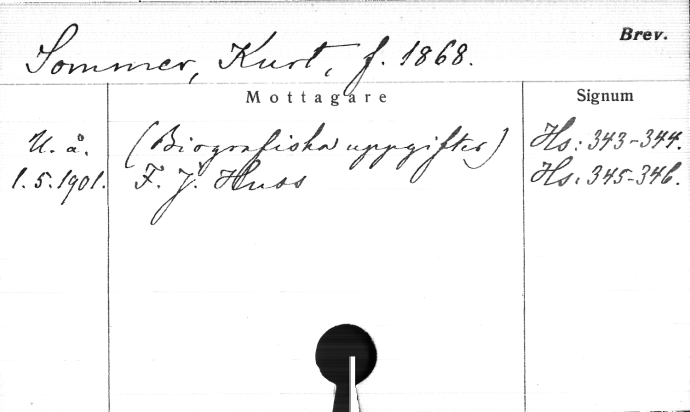 Brev.
Sommer, Kurt, f. 1868.
Mottagare Signum
U. å. (Biografiska uppgifter) Hs: 343-344.
1.5.1901. F. J. Huss Hs: 345-346.